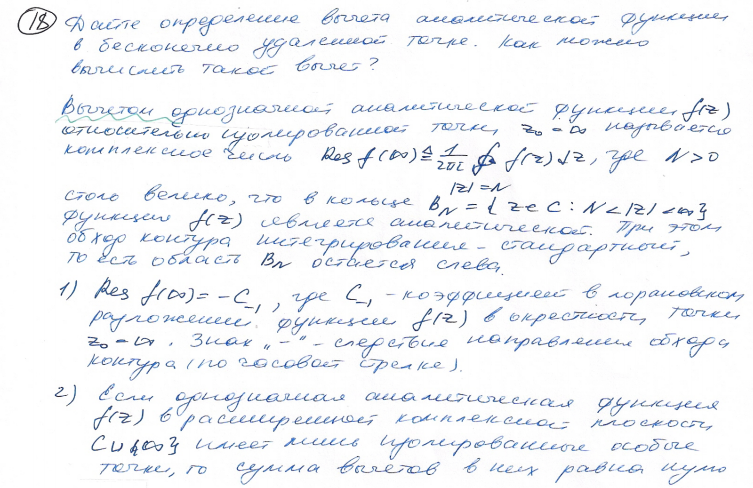 18 Дайте определение вычета аналитической функции
в бесконечно удаленной точке. Как можно
вычислить такой вычет?
Вычетом однозначной аналитической функции f(z)
относительно изолированной точки z₀ = ∞ называется
комплексное число Res f(∞) ≙ 1/2πi ∮ f(z) dz, где N>0
|z|=N
столь велико, что в кольце B_N = {z∈C: N<|z|<∞}
функция f(z) является аналитической. При этом
обход контура интегрирования - стандартный,
то есть область B_N остается слева.
1) Res f(∞) = -C₋₁, где C₋₁ - коэффициент в лорановском
разложении функции f(z) в окрестности точки
z₀ = ∞. Знак „-" - следствие направления обхода
контура (по часовой стрелке).
2) Если однозначная аналитическая функция
f(z) в расширенной комплексной плоскости
C∪{∞} имеет лишь изолированные особые
точки, то сумма вычетов в них равна нулю